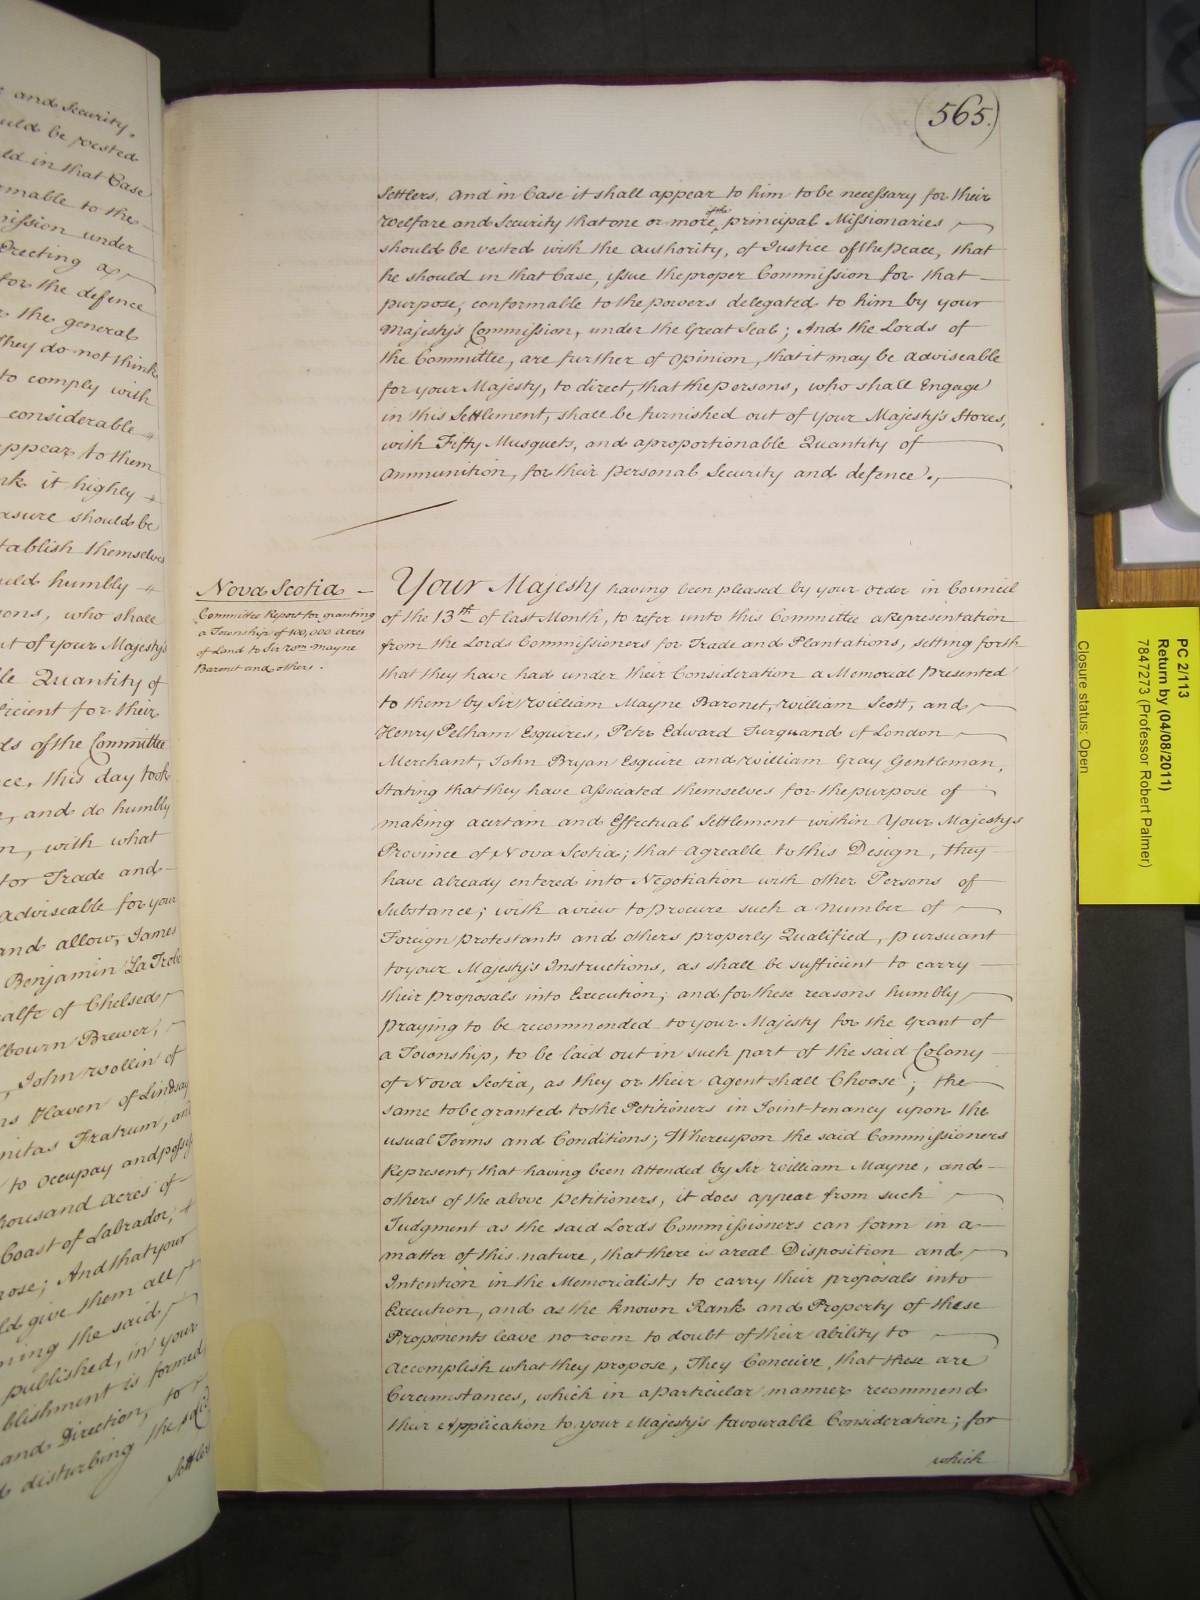 and Security.
uld be vested
ld in that Case
rmable to the
mission under
Erecting a
for the defence
the general
They do not think
to comply with
considerable
appear to them
nk it highly
asure should be
tablish themselves
uld humbly
ons, who shall
ut of your Majesty's
le Quantity of
ficient for their
ds of the Committee
ce, this day took
, and do humbly
n, with what
for Trade and
adviseable for your
and allow, James
Benjamin La Trobe
alfe of Chelsea
bourn Brewer,
, John Wollin of
ns Haven of Lindsay
nitas Fratrum, and
to Occupay and possess
housand acres of
Coast of Labrador,
pose; And that your
ld give them all
ming the said
published, in your
blishment is formed
and Direction, to
disturbing the said
Settlers
(565.)
Settlers, And in Case it shall appear to him to be necessary for their
Welfare and Security that one or more of the principal Missionaries
should be vested with the Authority, of Justice of the Peace, that
he should in that Case, issue the proper Commission for that
purpose, conformable to the powers delegated to him by your
Majesty's Commission, under the Great Seal; And the Lords of
the Committee, are further of opinion, that it may be adviseable
for your Majesty, to direct, that the persons, who shall Engage
in this Settlement, shall be furnished out of your Majesty's Stores,
with Fifty Musquets, and a proportionable Quantity of
Ammunition, for their personal Security and defence.
Nova Scotia
Committee Report for granting
a Township of 100,000 acres
of Land to Sir Wm. Mayne
Baronet and others.
Your Majesty having been pleased by your Order in Council
of the 13th. of last Month, to refer unto this Committee a Representation
from the Lords Commissioners for Trade and Plantations, setting forth
that they have had under their Consideration a Memorial presented
to them by Sir William Mayne Baronet, William Scott, and
Henry Pelham Esquires, Peter Edward Turquand of London
Merchant, John Bryan Esquire and William Gray Gentleman,
stating that they have associated themselves for the purpose of
making a certain and Effectual Settlement within Your Majesty's
Province of Nova Scotia; that agreable to this Design, they
have already entered into Negotiation with other Persons of
Substance; with a view to procure such a number of
Foreign protestants and others properly Qualified, pursuant
to your Majesty's Instructions, as shall be sufficient to carry
their Proposals into Execution; and for these reasons humbly
praying to be recommended to your Majesty for the Grant of
a Township, to be laid out in such part of the said Colony
of Nova Scotia, as they or their Agent shall Choose; the
same to be granted to the Petitioners in Joint-tenancy upon the
usual Terms and Conditions; Whereupon the said Commissioners
Represent, that having been attended by Sir William Mayne, and
others of the above petitioners, it does appear from such
Judgment as the said Lords Commissioners can form in a
matter of this nature, that there is a real Disposition and
Intention in the Memorialists to carry their proposals into
Execution, and as the known Rank and Property of these
Proponents leave no room to doubt of their ability to
accomplish what they propose, They Conceive that these are
Circumstances, which in a particular manner recommend
their Application to your Majesty's favourable Consideration; for
which
PC 2/113
Return by (04/08/2011)
7847273 (Professor Robert Palmer)
Closure status: Open